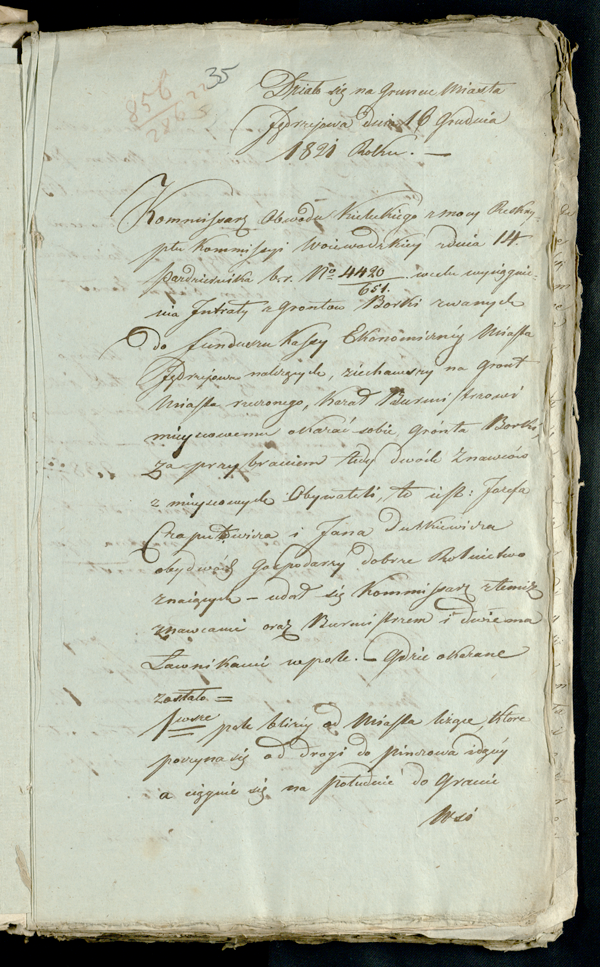 35
856
286
Działo się na Gruncie Miasta
Jędrzejowa dnia 16 Grudnia
1821 Roku. —
Kommissarz Obwodu Kieleckiego z mocy Reskry
ptu Kommissyi Woiewodzkiey z dnia 14
Pazdziernika b. r. No 4420/651. w celu wyciągnie-
nia Intraty z Gruntow Borki zwanych
do funduszu Kassy Ekonomiczney Miasta
Jędrzejowa należących, ziechawszy na Gront
Miasta rzeczonego, kazał Burmistrzowi
mieyscowemu okazać sobie Gronta Borki,
za przybraniem tudy dwóch Znawców
z mieyscowych Obywateli, to iest: Jozefa
Czaputowicza i Jana Dutkiewicza
obydwóch Gospodarzy dobrze Rolnictwo
znaiących — udał się Kommissarz z temiż
znawcami oraz Burmistrzem i dwiema
Ławnikami w pole. — Gdzie okazane
zostało =
1wsze pole bliżey od Miasta leżące, które
poczyna się od drogi do Pinczowa idącey
a ciągnie się na południe do Granic
Wsi